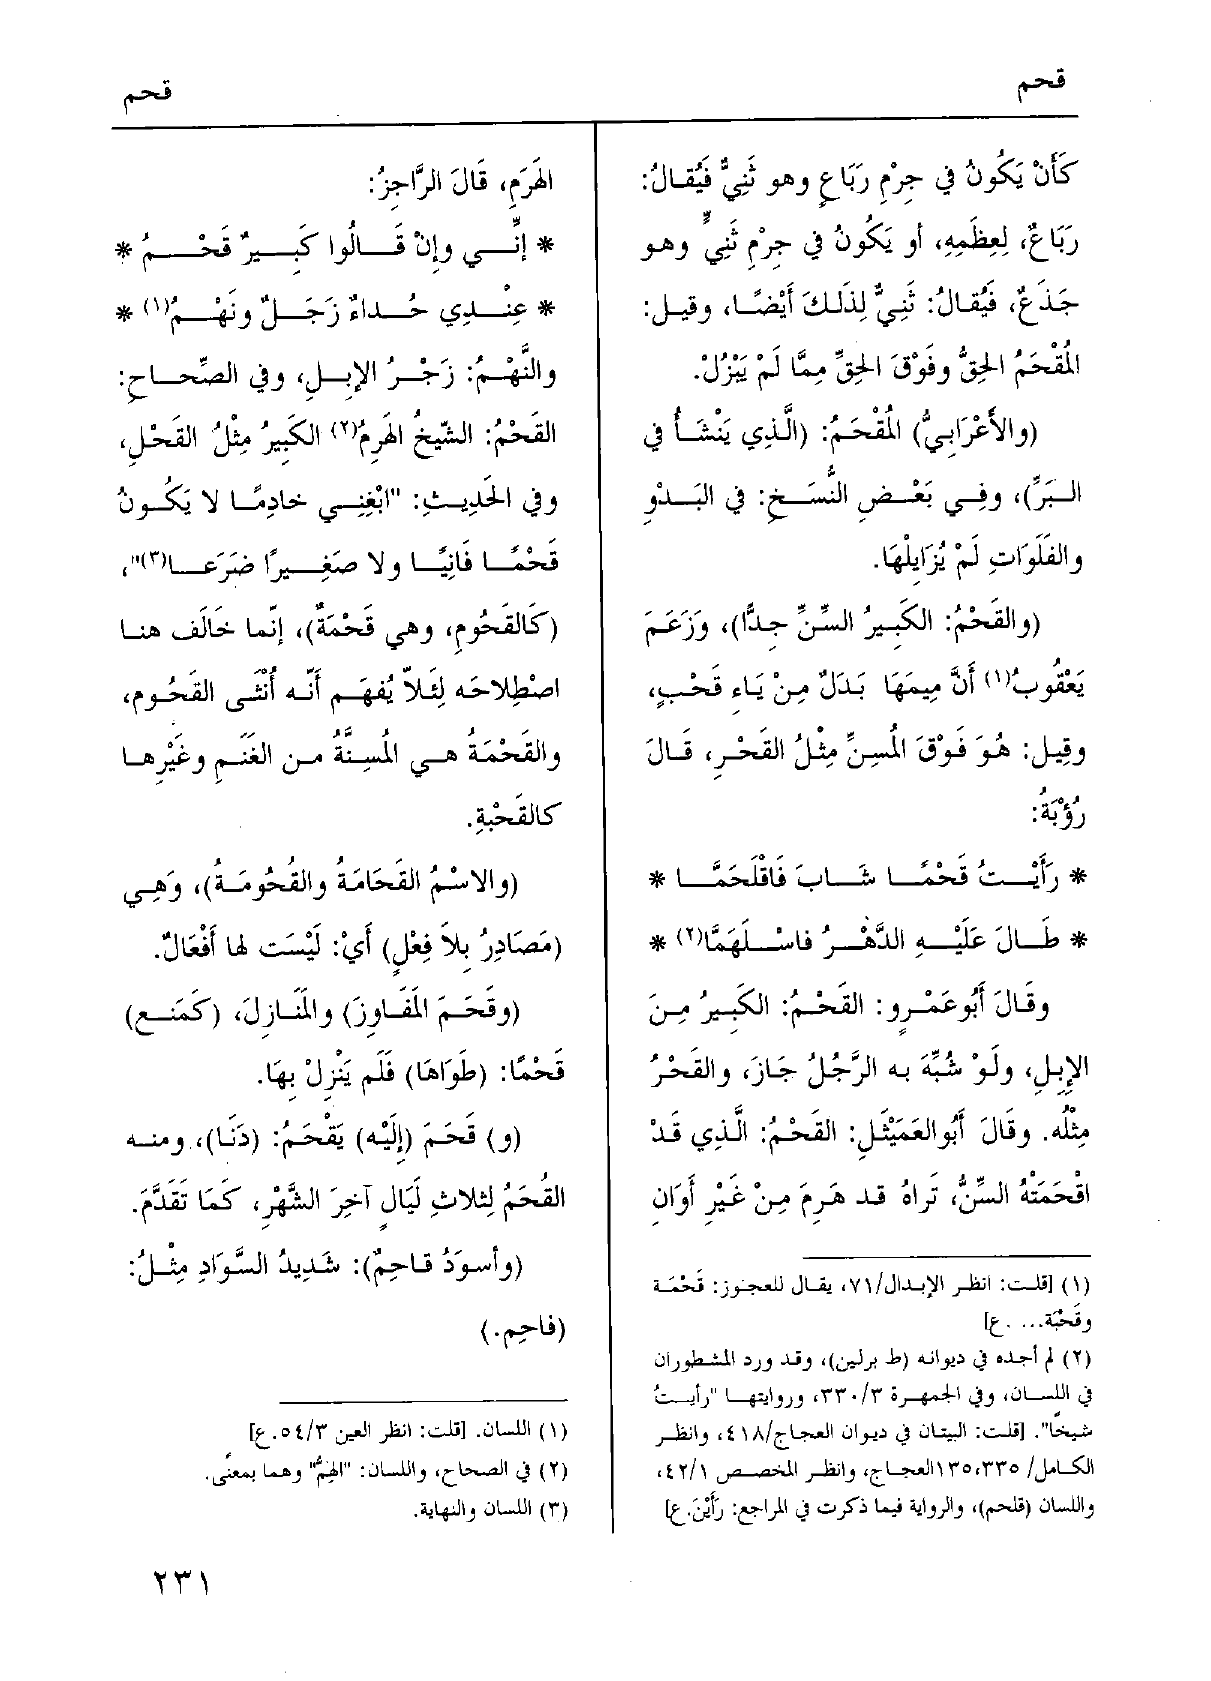 قحم
قحم
كَأَنْ يَكُونُ في جِرْمِ رَبَاعٍ وهو ثَنِيٌّ فَيُقالُ:
رَبَاعٌ، لِعِظَمِهِ، أو يَكُونُ في جِرْمِ ثَنِيٍّ وهو
جَذَعٌ، فَيُقالُ: ثَنِيٌّ لِذَلكَ أَيْضًا، وقيل:
المُقْحَمُ الحِقُّ وفَوْقَ الحِقِّ مِمَّا لَمْ يَبْزُلْ.
(والأَعْرَابِيُّ) المُقْحَمُ: (الَّذِي يَنْشَأُ في
البَرِّ)، وفِي بَعْضِ النُّسَخِ: في البَدْوِ
والفَلَوَاتِ لَمْ يُزَايِلْهَا.
(والقَحْمُ: الكَبِيرُ السِّنِّ جِدًّا)، وَزَعَمَ
يَعْقُوبُ(١) أَنَّ مِيمَهَا بَدَلٌ مِنْ بَاءِ قَحْبٍ،
وقِيل: هُوَ فَوْقَ المُسِنِّ مِثْلُ القَحْرِ، قَالَ
رُؤْبَةُ:
* رَأَيْتُ قَحْمًا شَابَ فَاقْلَحَمَّا *
* طَالَ عَلَيْهِ الدَّهْرُ فاسْلَهَمَّا(٢) *
وقَالَ أَبُوعَمْرٍو: القَحْمُ: الكَبِيرُ مِنَ
الإِبِلِ، ولَوْ شُبِّهَ به الرَّجُلُ جَازَ، والقَحْرُ
مِثْلُه. وقَالَ أَبُوالعَمَيْثَلِ: القَحْمُ: الَّذِي قَدْ
اقْحَمَتْهُ السِّنُّ، تَراهُ قد هَرِمَ مِنْ غَيْرِ أَوَانِ
(١) [قلت: انظر الإبدال/٧١، يقال للعجوز: قَحْمَة
وقَحْبَة... .ع]
(٢) لم أجده في ديوانه (ط برلين)، وقد ورد المشطوران
في اللسان، وفي الجمهرة ٣/٣٣٠، وروايتها "رأيتُ
شيخًا". [قلت: البيتان في ديوان العجاج/٤١٨، وانظر
الكامل/ ١٣٥،٣٣٥العجاج، وانظر المخصص ٤٢/١،
واللسان (قلحم)، والرواية فيما ذكرت في المراجع: رَأَيْنَ.ع]
الهَرَمِ، قَالَ الرَّاجِزُ:
* إِنِّي وإِنْ قَالُوا كَبِيرٌ قَحْمُ *
* عِنْدِي حُداءٌ زَجَلٌ ونَهْمُ(١) *
والنَّهْمُ: زَجْرُ الإبلِ، وفي الصِّحاحِ:
القَحْمُ: الشّيخُ الهَرِمُ(٢) الكَبيرُ مِثْلُ القَحْلِ،
وفي الحَدِيثِ: "ابْغِنِي خادِمًا لا يَكُونُ
قَحْمًا فَانِيًا ولا صَغِيرًا ضَرَعا(٣)"،
(كَالقَحُومِ، وهي قَحْمَةٌ)، إنّما خَالَف هنا
اصْطِلاحَه لِئَلاَّ يُفهَم أَنّه أُنْثَى القَحُوم،
والقَحْمَةُ هي المُسِنَّةُ من الغَنَمِ وغَيْرِها
كالقَحْبَةِ.
(والاسْمُ القَحَامَةُ والقُحُومَةُ)، وَهِي
(مَصَادِرُ بِلاَ فِعْلٍ) أَيْ: لَيْسَت لها أَفْعَالٌ.
(وقَحَمَ المَفَاوِزَ) والمَنَازِلَ، (كَمَنع)
قَحْمًا: (طَوَاهَا) فَلَم يَنْزِلْ بِهَا.
(و) قَحَمَ (إِلَيْه) يَقْحَمُ: (دَنَا)، ومنه
القُحَمُ لِثلاثِ لَيَالٍ آخِرَ الشَّهْرِ، كَمَا تَقَدَّمَ.
(وأسوَدُ قاحِمٌ): شَدِيدُ السَّوَادِ مِثْلُ:
(فاحِم.)
(١) اللسان. [قلت: انظر العين ٥٤/٣.ع]
(٢) في الصحاح، واللسان: "الهِمُّ" وهما بمعنًى.
(٣) اللسان والنهاية.
٢٣١